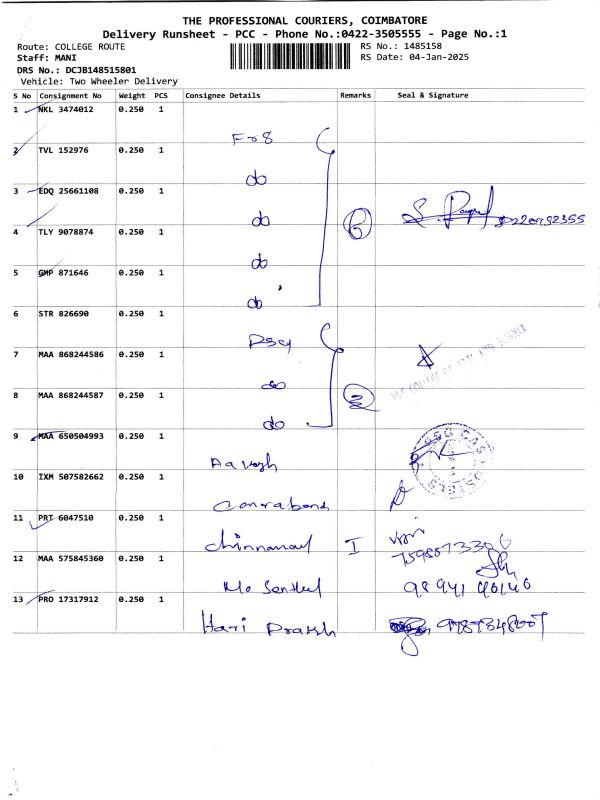 THE PROFESSIONAL COURIERS, COIMBATORE
Delivery Runsheet - PCC - Phone No.:0422-3505555 - Page No.:1
Route: COLLEGE ROUTE RS No.: 1485158
Staff: MANI RS Date: 04-Jan-2025
DRS No.: DCJB148515801
Vehicle: Two Wheeler Delivery
S No Consignment No Weight PCS Consignee Details Remarks Seal & Signature
1 NKL 3474012 0.250 1
2 TVL 152976 0.250 1
do
3 EDQ 25661108 0.250 1
do
4 TLY 9078874 0.250 1
do
5 GMP 871646 0.250 1
do
6 STR 826690 0.250 1
7 MAA 868244586 0.250 1
do
8 MAA 868244587 0.250 1
do
9 MAA 650504993 0.250 1
10 IXM 507582662 0.250 1
11 PRT 6047510 0.250 1
I
12 MAA 575845360 0.250 1
98941 40140
13 PRO 17317912 0.250 1
Hari Praksh